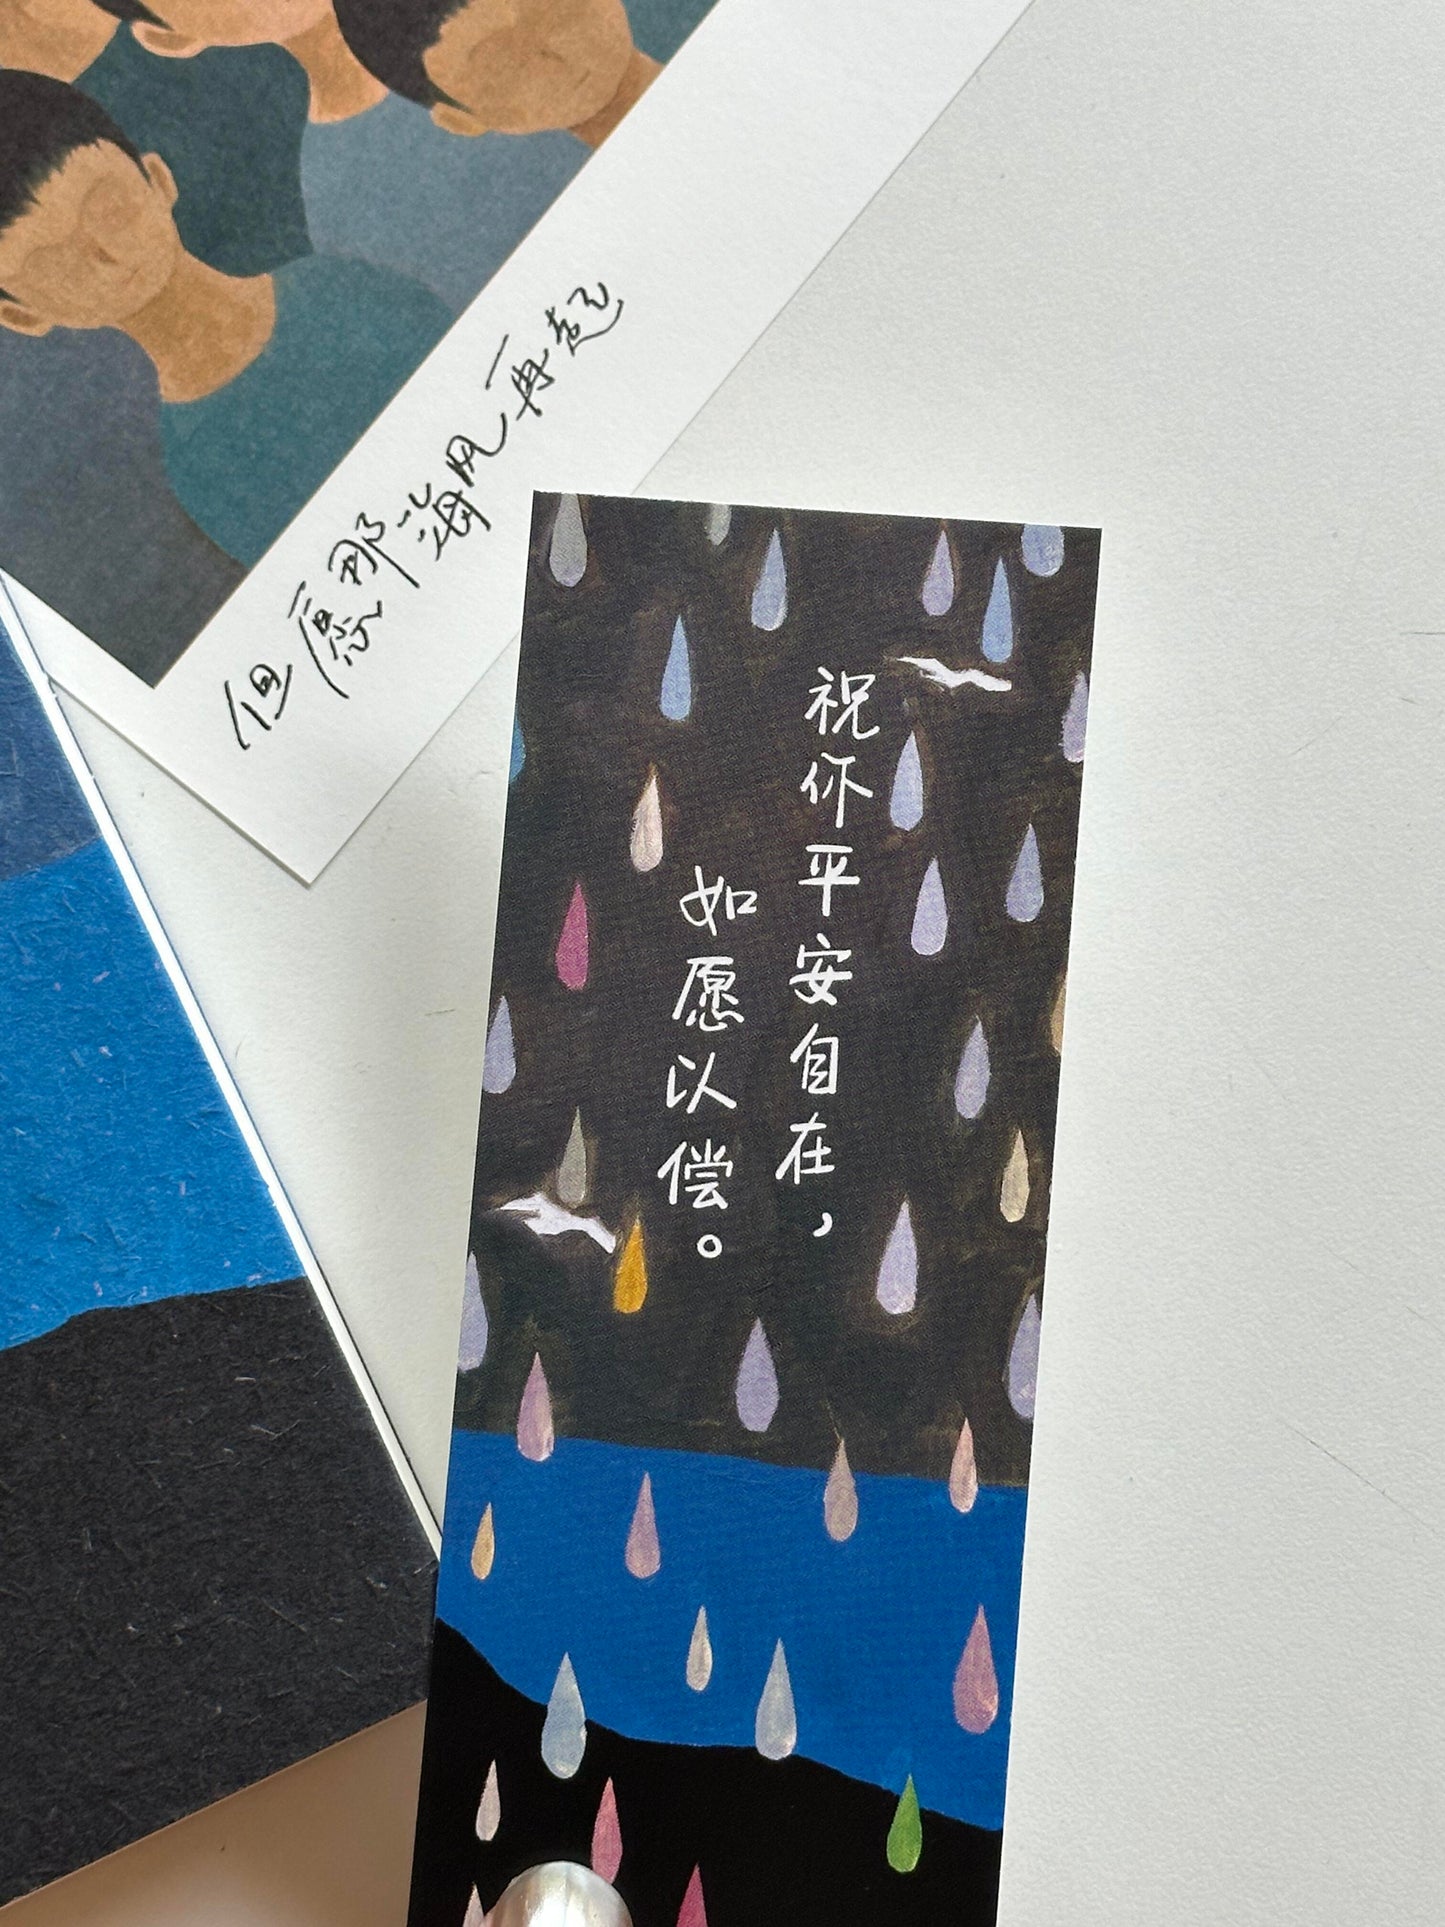 但愿那海风再起
祝你平安自在，
如愿以偿。